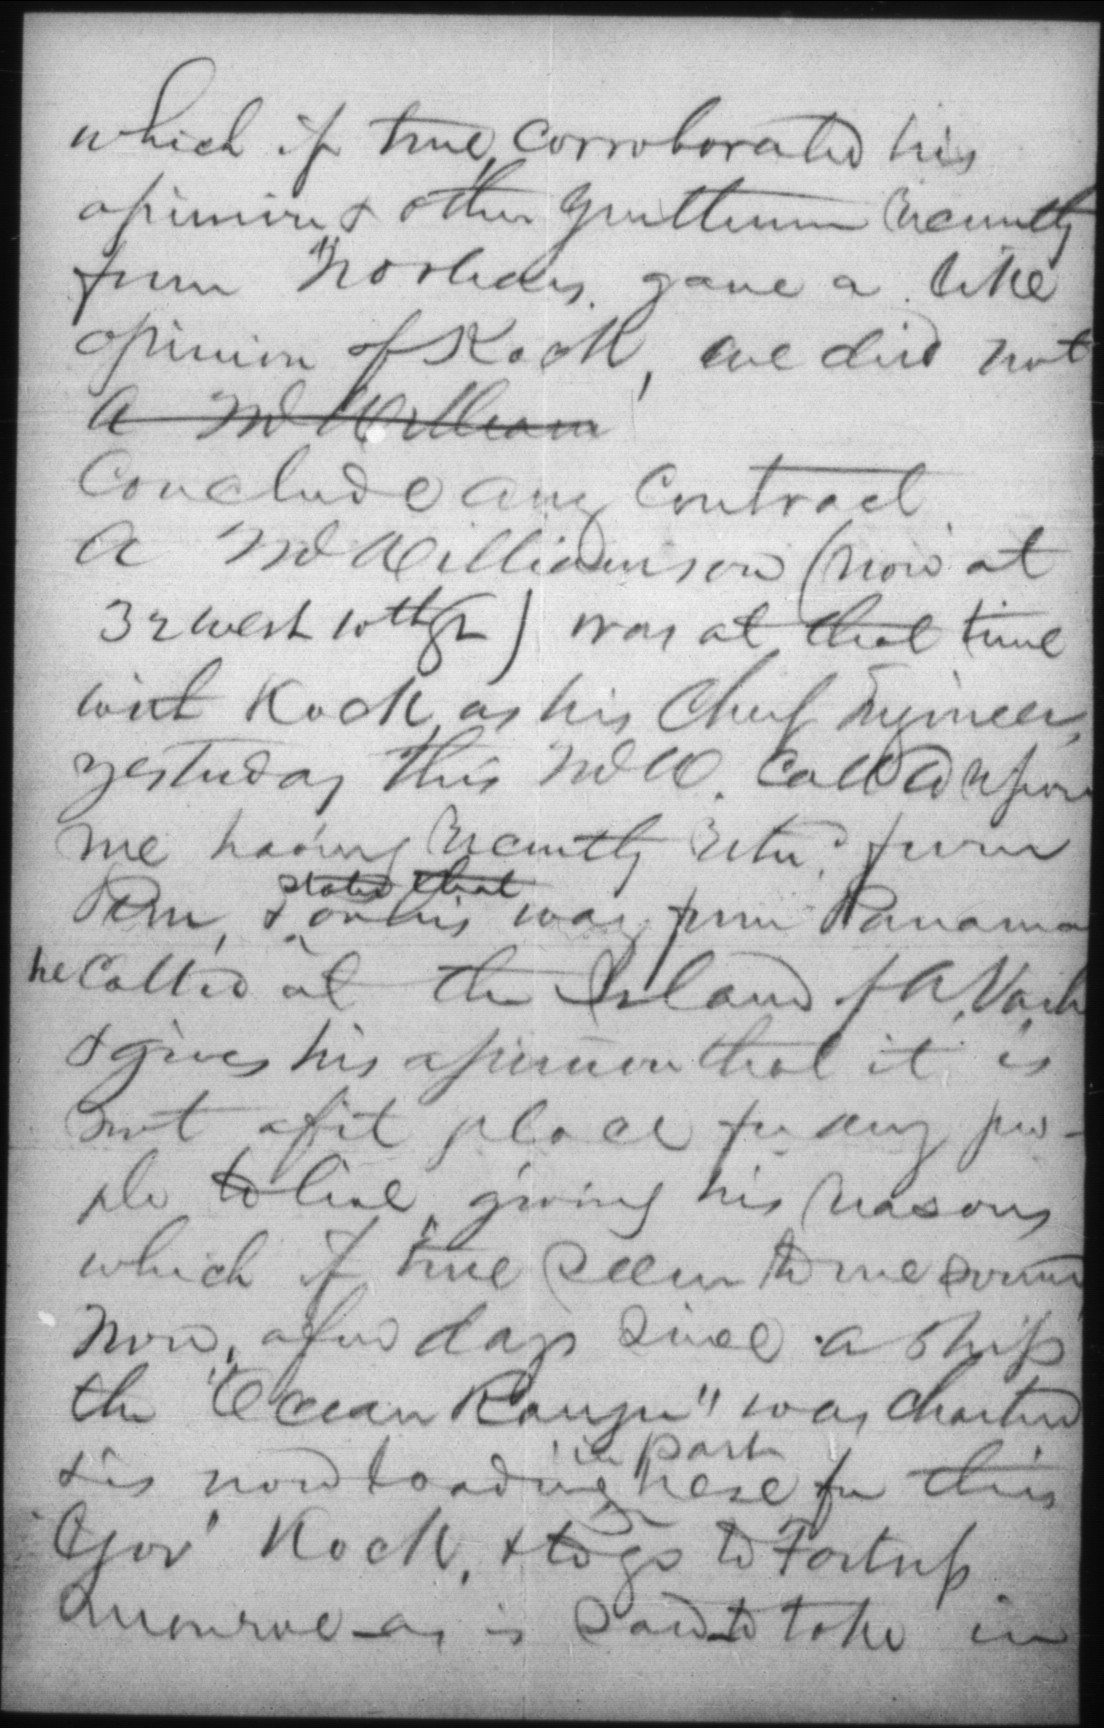 which if true, corroborated his
opinion & other gentlemen recently
from "Norleans", gave a like
opinion of Kock, we did not
a Mr William
Conclude any Contract
A Mr Williamson (now at
32 west 10th St) was at that time
with Kock as his Chief Engineer,
yesterday this Mr W. Called upon
me having recently retd from
Peru, & stated that on his way from Panama
he Called at the Island of A. Vach
& gives his opinion that it is
not a fit place for any peo-
ple to live, giving his reasons
which if true seem to me sound
Now, a few days since a ship
the "Ocean Ranger" was charterd
& is now loading in part here for this
"Gov" Kock, & to go to Fortress
Munroe as is said to take in